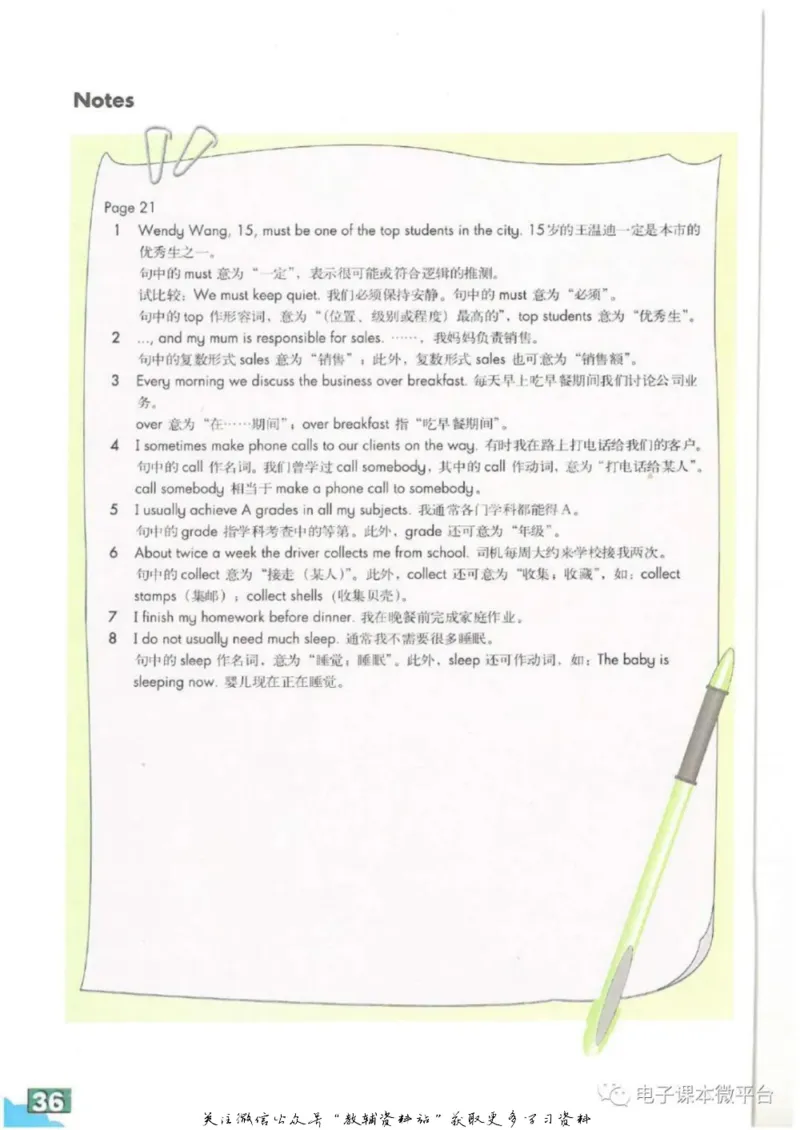 Notes
Page 21
1 Wendy Wang, 15, must be one of the top students in the city. 15岁的王温迪一定是本市的
优秀生之一。
句中的 must 意为“一定”，表示很可能或符合逻辑的推测。
试比较：We must keep quiet. 我们必须保持安静。句中的 must 意为“必须”。
句中的 top 作形容词，意为“(位置、级别或程度) 最高的”，top students 意为“优秀生”。
2 ..., and my mum is responsible for sales. ……，我妈妈负责销售。
句中的复数形式 sales 意为“销售”；此外，复数形式 sales 也可意为“销售额”。
3 Every morning we discuss the business over breakfast. 每天早上吃早餐期间我们讨论公司业
务。
over 意为“在……期间”；over breakfast 指“吃早餐期间”。
4 I sometimes make phone calls to our clients on the way. 有时我在路上打电话给我们的客户。
句中的 call 作名词。我们曾学过 call somebody，其中的 call 作动词，意为“打电话给某人”。
call somebody 相当于 make a phone call to somebody。
5 I usually achieve A grades in all my subjects. 我通常各门学科都能得 A。
句中的 grade 指学科考查中的等第。此外，grade 还可意为“年级”。
6 About twice a week the driver collects me from school. 司机每周大约来学校接我两次。
句中的 collect 意为“接走（某人）”。此外，collect 还可意为“收集；收藏”，如：collect
stamps（集邮）；collect shells（收集贝壳）。
7 I finish my homework before dinner. 我在晚餐前完成家庭作业。
8 I do not usually need much sleep. 通常我不需要很多睡眠。
句中的 sleep 作名词，意为“睡觉；睡眠”。此外，sleep 还可作动词，如：The baby is
sleeping now. 婴儿现在正在睡觉。
36
电子课本微平台
关注微信公众号“教辅资料站”获取更多学习资料